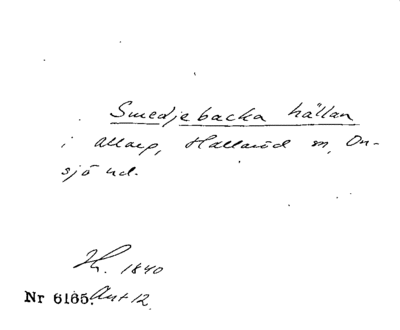 Smedjebacka hällan
i Allarp, Hallaröd sn, On-
sjö hd.
H. 1840
Nr 6165. Ant 12